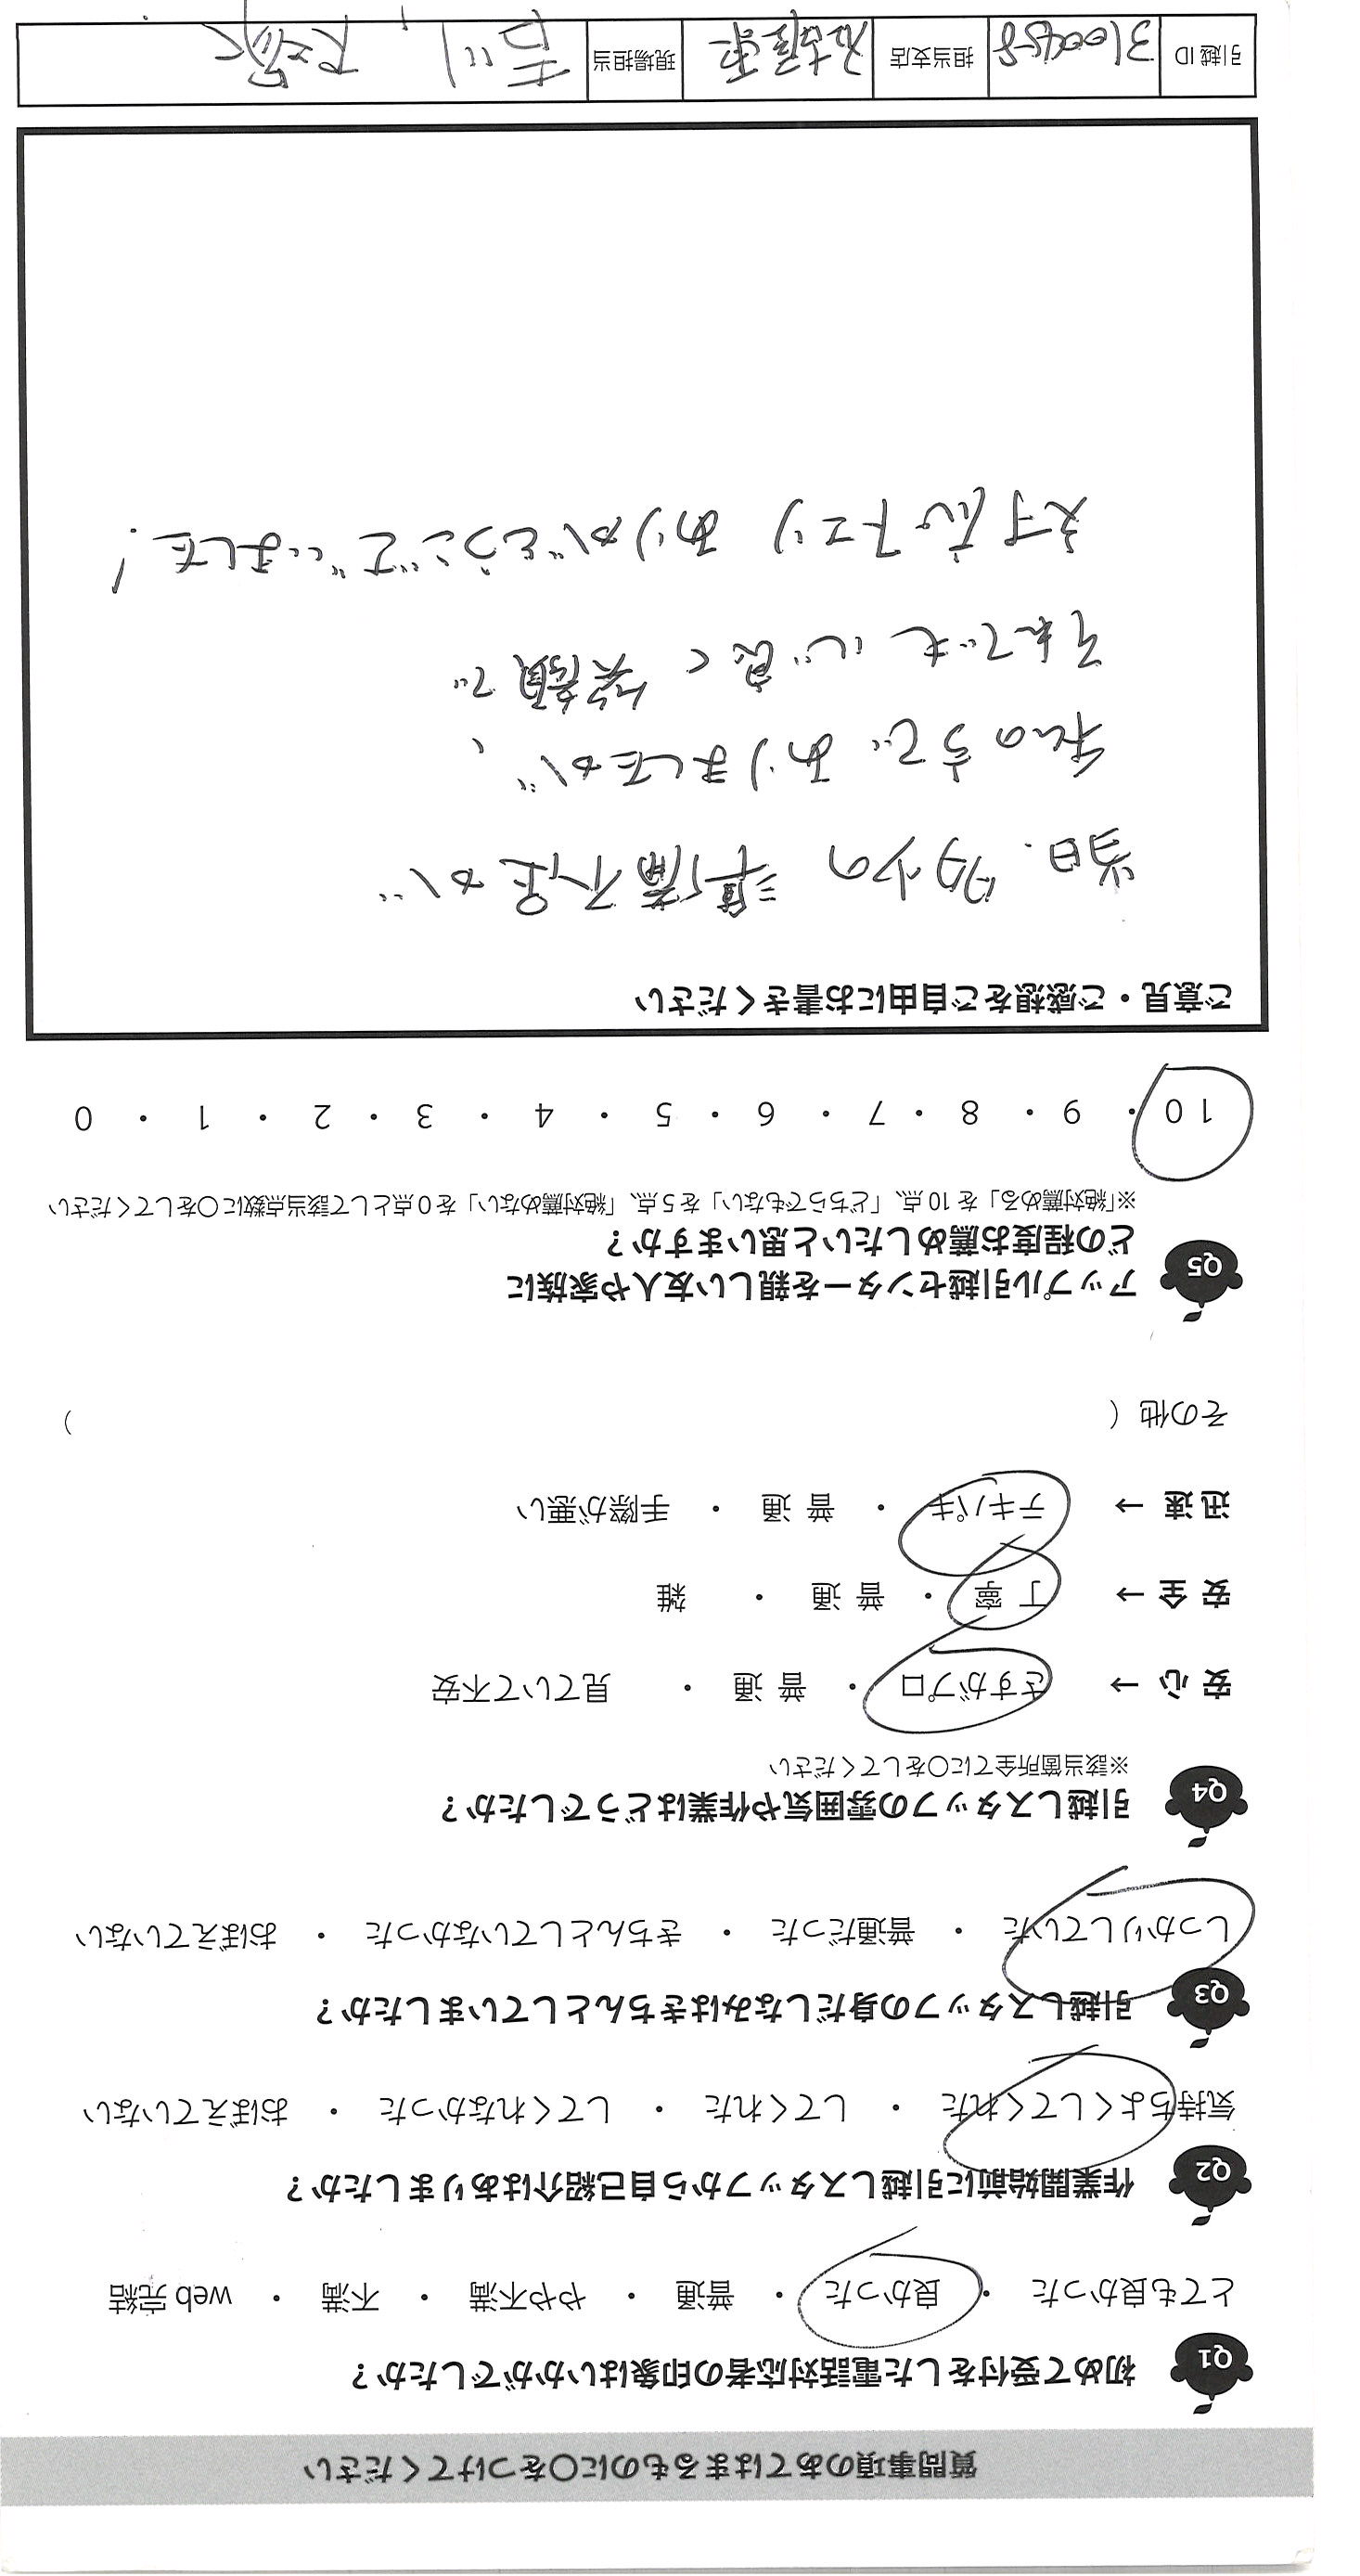 質問事項のあてはまるものに○をつけてください
Q1 初めて受付をした電話対応者の印象はいかがでしたか？
とても良かった ・ 良かった ・ 普通 ・ やや不満 ・ 不満 ・ web 完結
Q2 作業開始前に引越しスタッフから自己紹介はありましたか？
気持ちよくしてくれた ・ してくれた ・ してくれなかった ・ おぼえていない
Q3 引越しスタッフの身だしなみはきちんとしていましたか？
しっかりしていた ・ 普通だった ・ きちんとしていなかった ・ おぼえていない
Q4 引越しスタッフの雰囲気や作業はどうでしたか？
※該当箇所全てに○をしてください
安 心 → さすがプロ ・ 普 通 ・ 見ていて不安
安 全 → 丁 寧 ・ 普 通 ・ 雑
迅 速 → テキパキ ・ 普 通 ・ 手際が悪い
その他（ ）
Q5 アップル引越センターを親しい友人や家族に
どの程度お薦めしたいと思いますか？
※「絶対薦める」を 10 点、「どちらでもない」を 5 点、「絶対薦めない」を 0 点として該当点数に○をしてください
10 ・ 9 ・ 8 ・ 7 ・ 6 ・ 5 ・ 4 ・ 3 ・ 2 ・ 1 ・ 0
ご意見・ご感想をご自由にお書きください
当日、多少の 準備不足が
私の方で ありましたが、
それでも 心良く 笑顔で
対応下さり ありがとうございました！
引越 ID 3100458 担当支店 名古屋東 現場担当 吉川